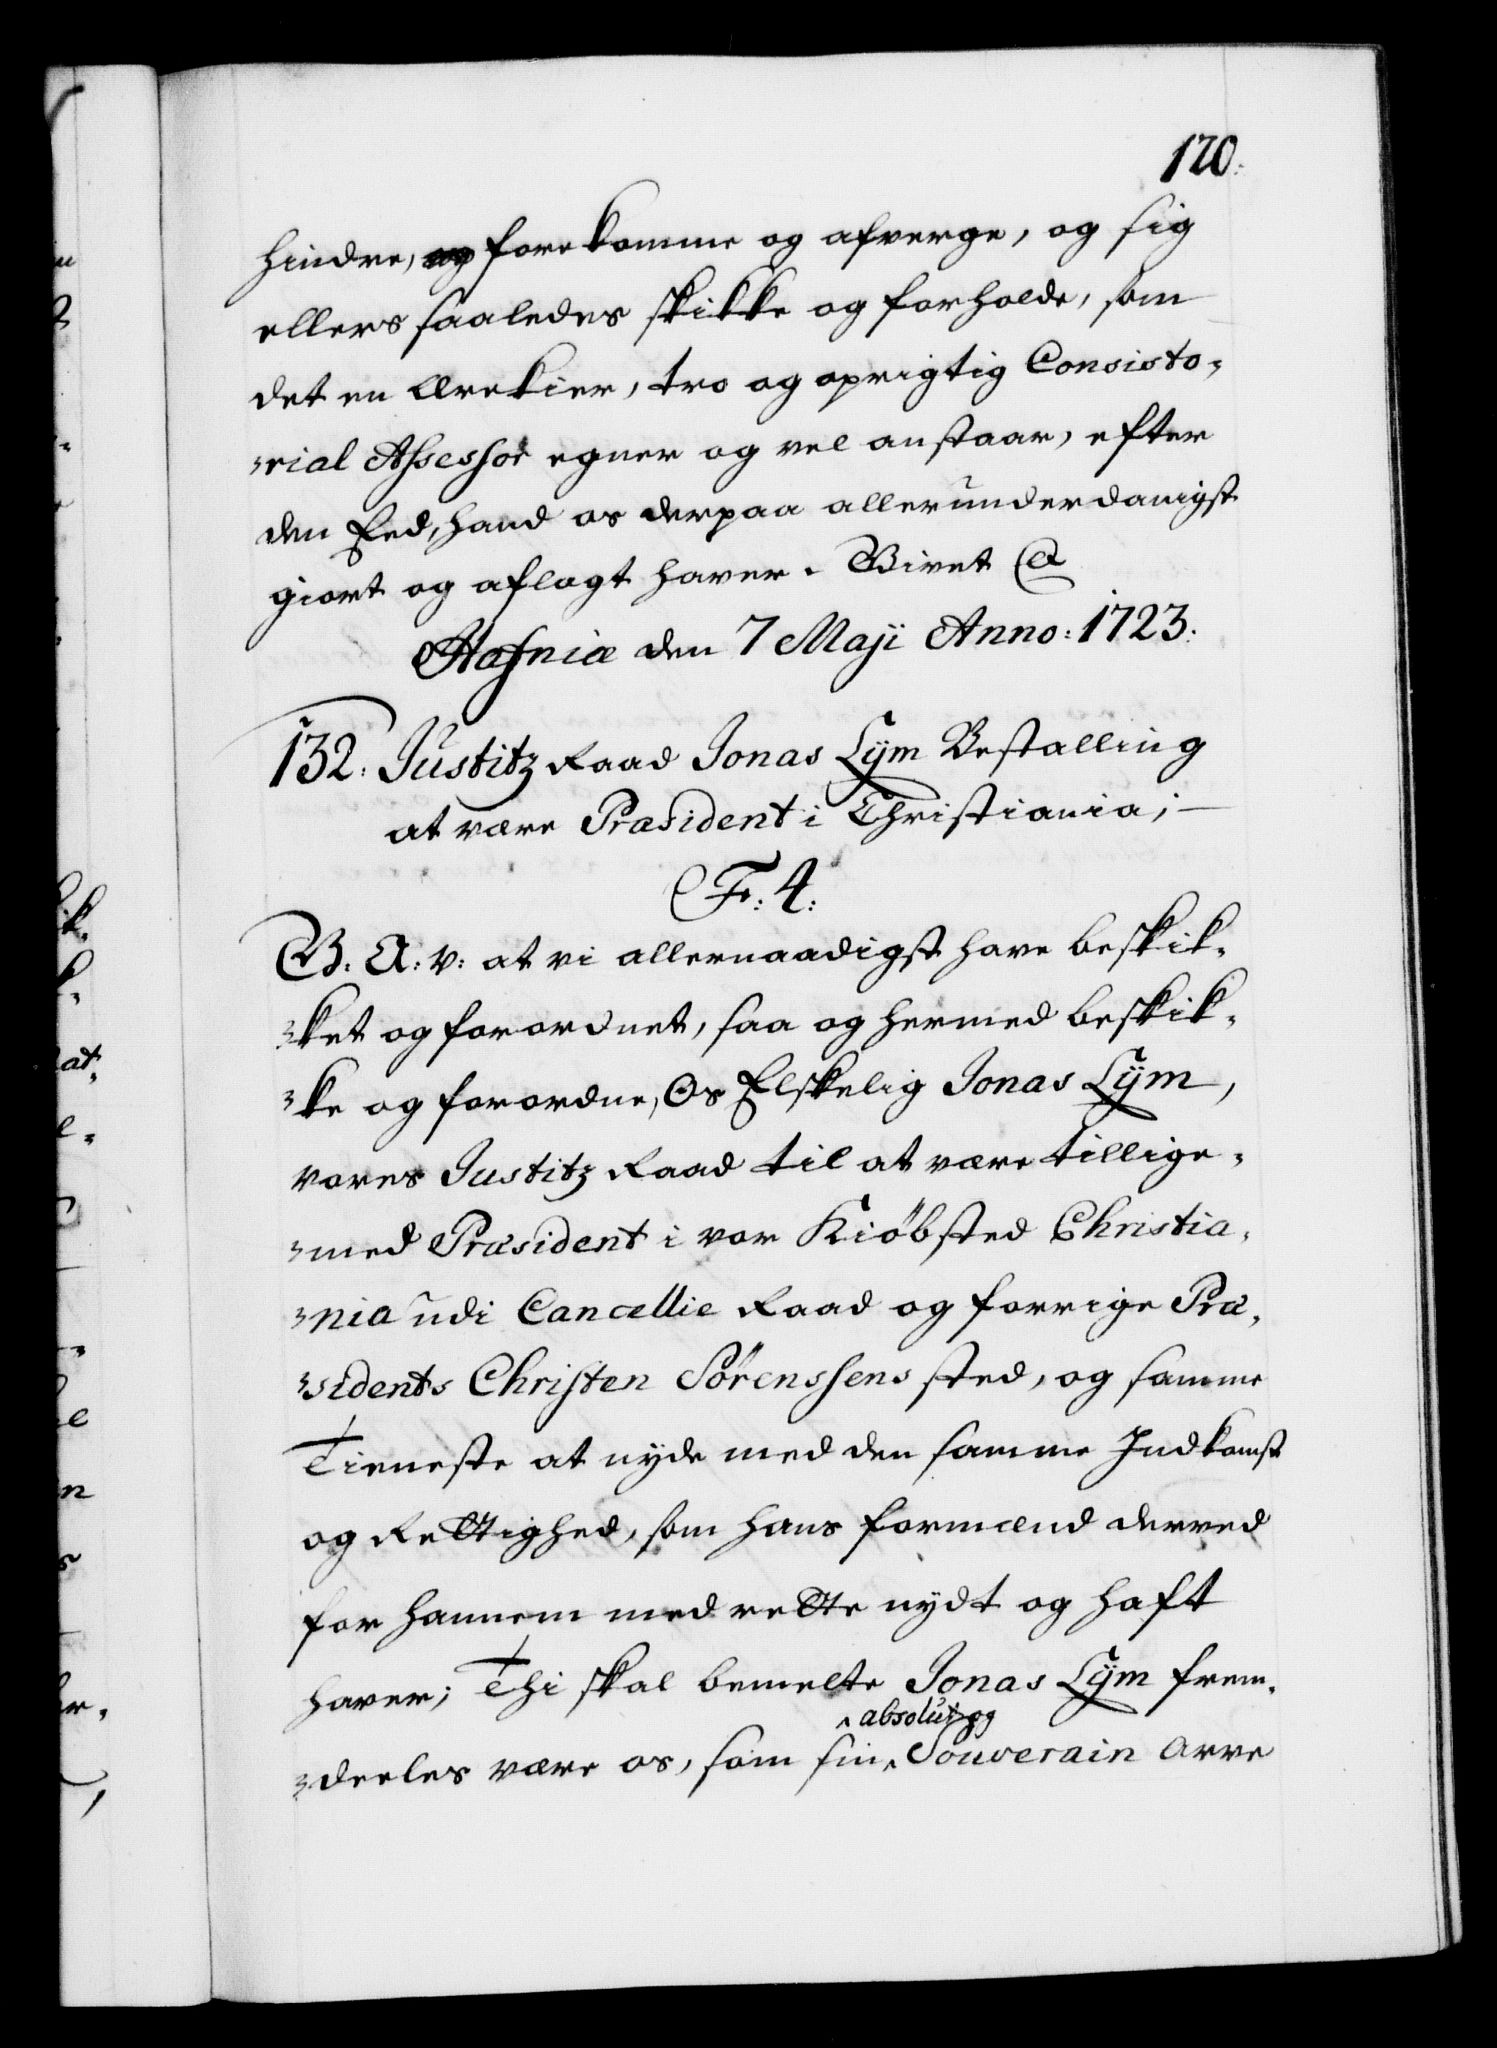 120:
hindre, og forekomme og afverge, og sig
ellers saaledes skikke og forholde, som
det en Ærekier, tro og oprigtig Consisto-
rial Assessor egner og vel anstaar, efter
den Eed, hand os derpaa allerunderdanigst
giort og aflagt haver. Givet &
Hafniæ den 7 Maji Anno: 1723:
132: Justitz Raad Jonas Lÿm Bestalling
at være Præsident i Christiania;
F: 4:
G: A: v: at vi allernaadigst have beskik-
ket og forordnet, saa og hermed beskik-
ke og forordne, Os Elskelig Jonas Lÿm,
vores Justitz Raad til at være tillige-
med Præsident i vor Kiöbsted Christia-
nia udi Cancellie Raad og forrige Præ-
sidents Christen Sörenssens sted, og samme
Tieneste at nyde med den samme Indkomst
og Rettighed, som hans formænd derved
for hannem med rette nydt og haft
haver; Thi skal bemelte Jonas Lÿm frem-
absolut og
deeles være os, som sin Souverain Arve